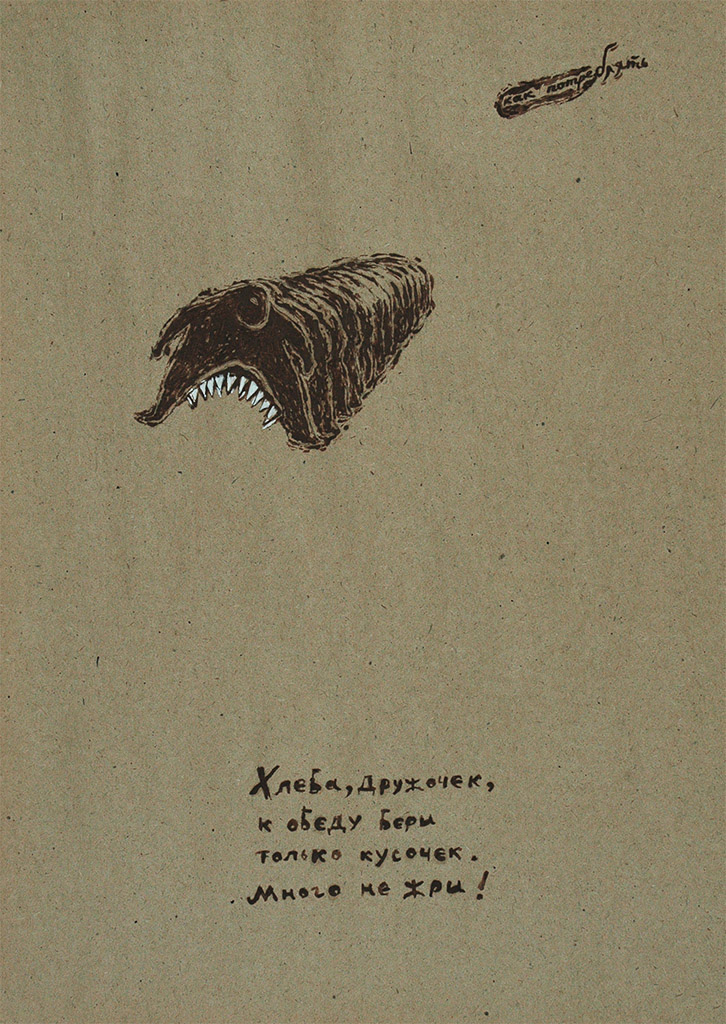 как потреблять
Хлеба, дружочек,
к обеду бери
только кусочек.
Много не жри!